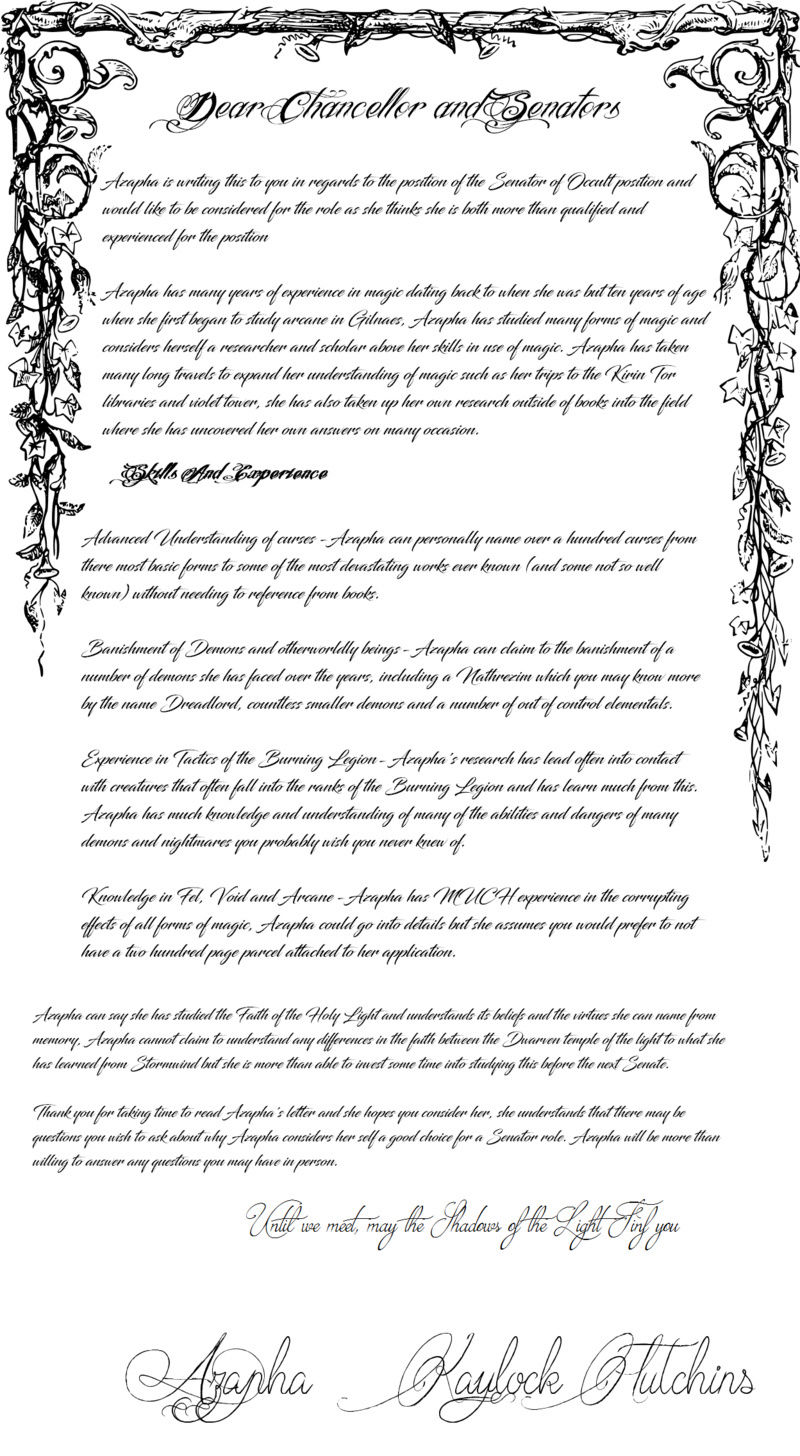 Dear Chancellor and Senators
Azapha is writing this to you in regards to the position of the Senator of Occult position and
would like to be considered for the role as she thinks she is both more than qualified and
experienced for the position
Azapha has many years of experience in magic dating back to when she was but ten years of age
when she first began to study arcane in Gilnaes, Azapha has studied many forms of magic and
considers herself a researcher and scholar above her skills in use of magic. Azapha has taken
many long travels to expand her understanding of magic such as her trips to the Kirin Tor
libraries and violet tower, she has also taken up her own research outside of books into the field
where she has uncovered her own answers on many occasion.
Skills And Experience
Advanced Understanding of curses - Azapha can personally name over a hundred curses from
there most basic forms to some of the most devastating works ever known (and some not so well
known) without needing to reference from books.
Banishment of Demons and otherworldly beings - Azapha can claim to the banishment of a
number of demons she has faced over the years, including a Nathrezim which you may know more
by the name Dreadlord, countless smaller demons and a number of out of control elementals.
Experience in Tactics of the Burning Legion - Azapha's research has lead often into contact
with creatures that often fall into the ranks of the Burning Legion and has learn much from this.
Azapha has much knowledge and understanding of many of the abilities and dangers of many
demons and nightmares you probably wish you never knew of.
Knowledge in Fel, Void and Arcane - Azapha has MUCH experience in the corrupting
effects of all forms of magic, Azapha could go into details but she assumes you would prefer to not
have a two hundred page parcel attached to her application.
Azapha can say she has studied the Faith of the Holy Light and understands its beliefs and the virtues she can name from
memory, Azapha cannot claim to understand any differences in the faith between the Dwarven temple of the light to what she
has learned from Stormwind but she is more than able to invest some time into studying this before the next Senate.
Thank you for taking time to read Azapha's letter and she hopes you consider her, she understands that there may be
questions you wish to ask about why Azapha considers her self a good choice for a Senator role. Azapha will be more than
willing to answer any questions you may have in person.
Until we meet, may the Shadows of the Light Finf you
Azapha Kaylock Hutchins